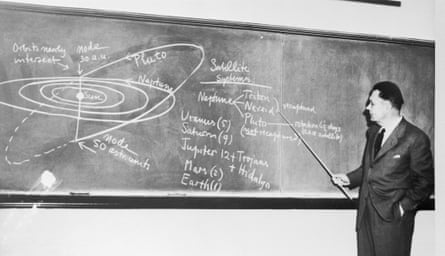 Orbits nearly
intersect
node
30 a.u.
Pluto
Neptune
Sun
node
50 astr. units
Satellite
Systems
Neptune
Triton
Nereid
recaptured
Pluto
(yet recaptured)
rotation 6½ days
(ex a satellite)
Uranus (5)
Saturn (9)
Jupiter 12 + Trojans
+ Hidalgo
Mars (2)
Earth (1)